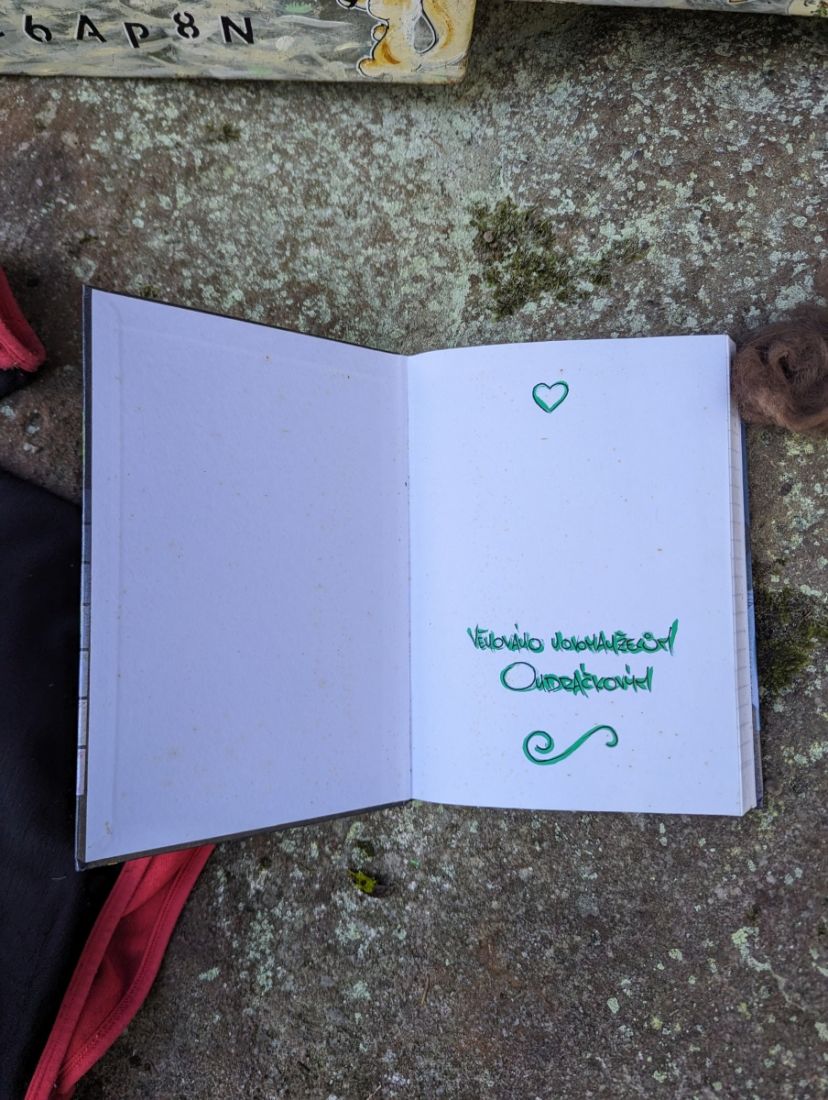 Věnováno novomanželům
Ondráčkovým